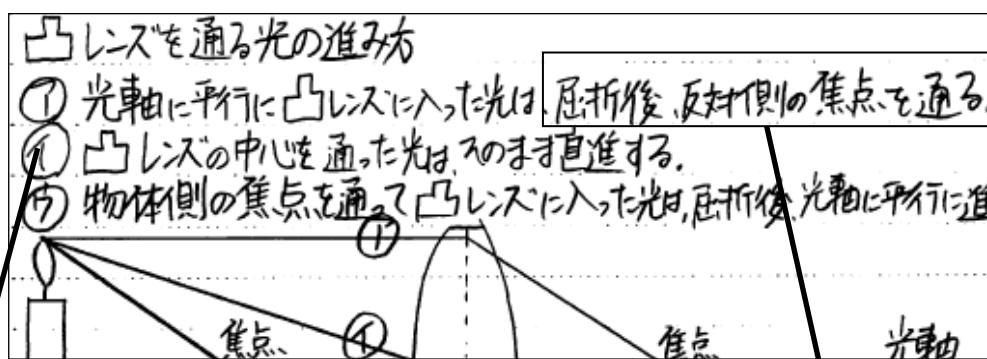 凸レンズを通る光の進み方
㋐ 光軸に平行に凸レンズに入った光は、屈折後、反対側の焦点を通る。
㋑ 凸レンズの中心を通った光は、そのまま直進する。
㋒ 物体側の焦点を通って凸レンズに入った光は、屈折後、光軸に平行に進
㋐
焦点 ㋑ 焦点 光軸